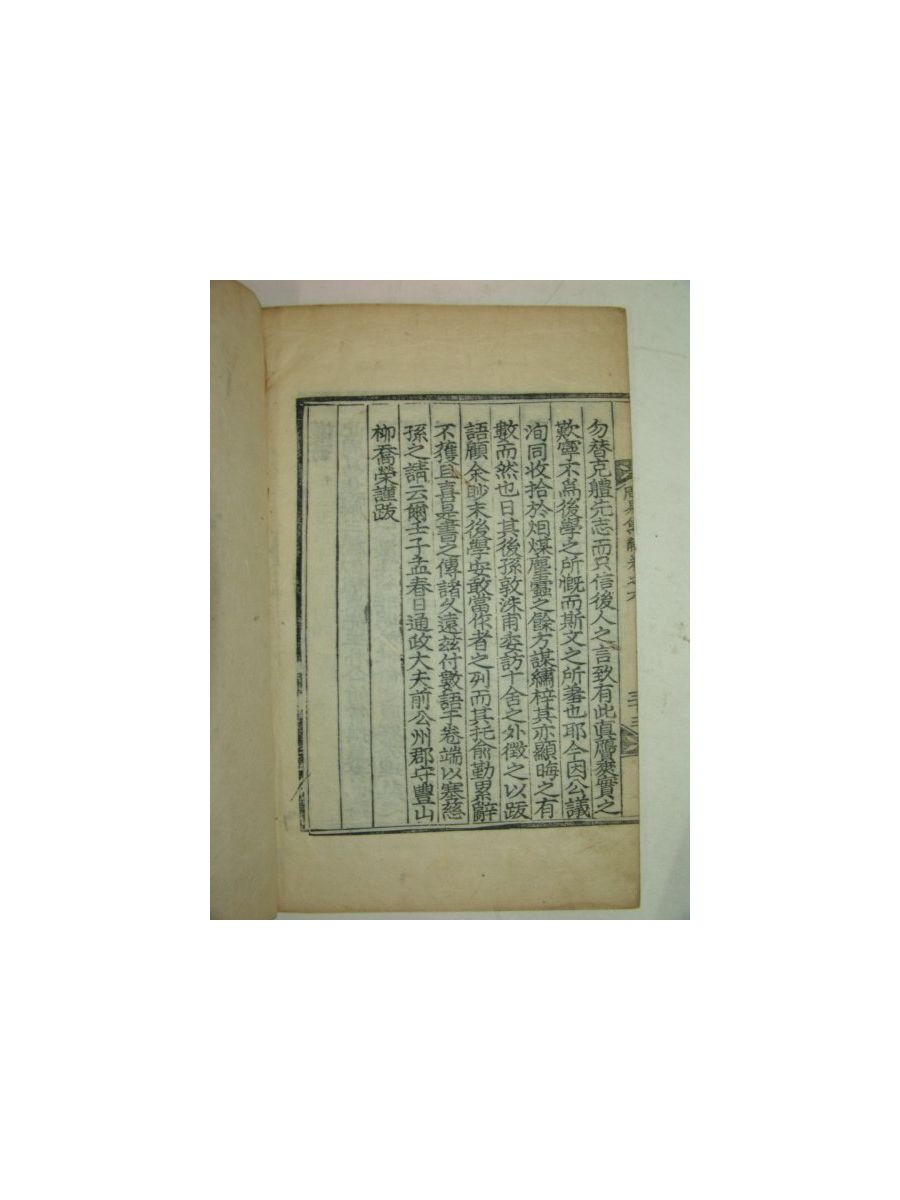 勿替克體先志而只信後人之言致有此眞贗爽實之
歎寧不爲後學之所慨而斯文之所羞也耶今因公議
洵同收拾於烟煤塵蠹之餘方謀繡梓其亦顯晦之有
數而然也日其後孫敦洙甫委訪十舍之外徵之以跋
語顧余眇末後學安敢當作者之列而其托兪勤累辭
不獲且喜是書之傳諸久遠玆付數語于卷端以塞慈
孫之請云爾壬子孟春日通政大夫前公州郡守豊山
柳喬榮謹跋